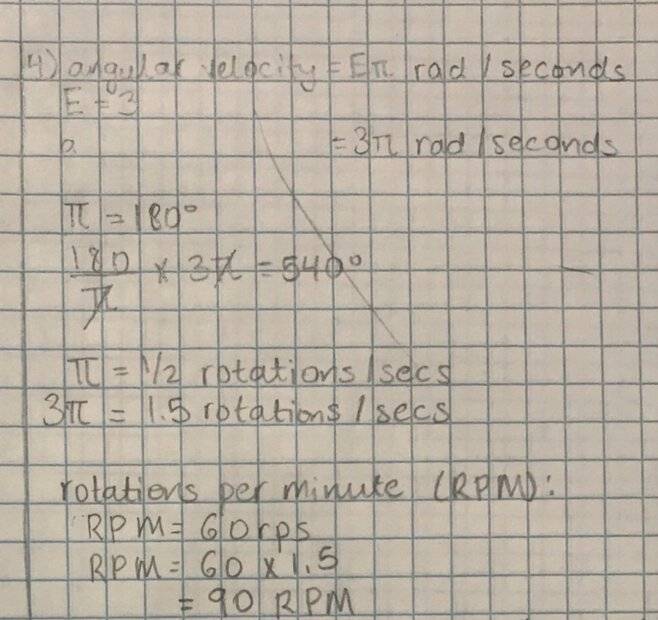 4) angular velocity = Eπ rad / seconds
E = 3
= 3π rad / seconds
π = 180°
180/π × 3π = 540°
π = 1/2 rotations / secs
3π = 1.5 rotations / secs
rotations per minute (RPM):
RPM = 60rps
RPM = 60 x 1.5
= 90 RPM